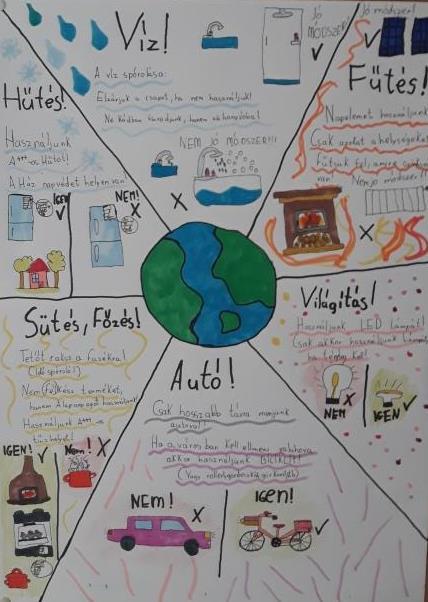 Víz!
JÓ MÓDSZER!
A víz spórolása:
Elzárjuk a csapot, ha nem használjuk!
Ne kádban fürödjünk, hanem zuhanyzóban!
NEM JÓ MÓDSZER!!!
Jó módszer!
Fűtés!
Napelemet használjunk
Csak azokat a helyiségeket
fűtjük fel, amire szükség
van!
Nem jó módszer!!
Hűtés!
Használjunk
A+++-os Hűtőt!
A Ház napvédett helyen van
IGEN!
NEM!
Világítás!
Használjunk LED lámpát!
Csak akkor használjunk lámpát,
ha tényleg kell!
NEM
IGEN
Sütés, Főzés!
Tetőt rakva a fazékra!
(Idő spórolás!)
terméket,
hanem Alapanyagot használjunk!
Használjunk A+++
tűzhelyet!
IGEN!
Nem!
Autó!
Csak hosszabb távra menjünk
autóval!
Ha a városban kell elmenni
akkor használjunk BICIKLIT!
NEM!
Igen!